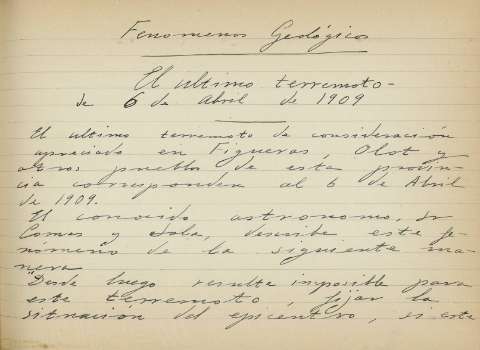 Fenomenos Geológicos
El ultimo terremoto -
de 6 de Abril de 1909
El ultimo terremoto de consideración
apreciado en Figueras, Olot y
otros pueblos de esta provin-
cia corresponden al 6 de Abril
de 1909.
El conocido astronomo, Sr
Comas y Sola, describe este fe-
nómeno de la siguiente ma-
nera
Desde luego resulta imposible para
este terremoto, fijar la
situación del epicentro, si este